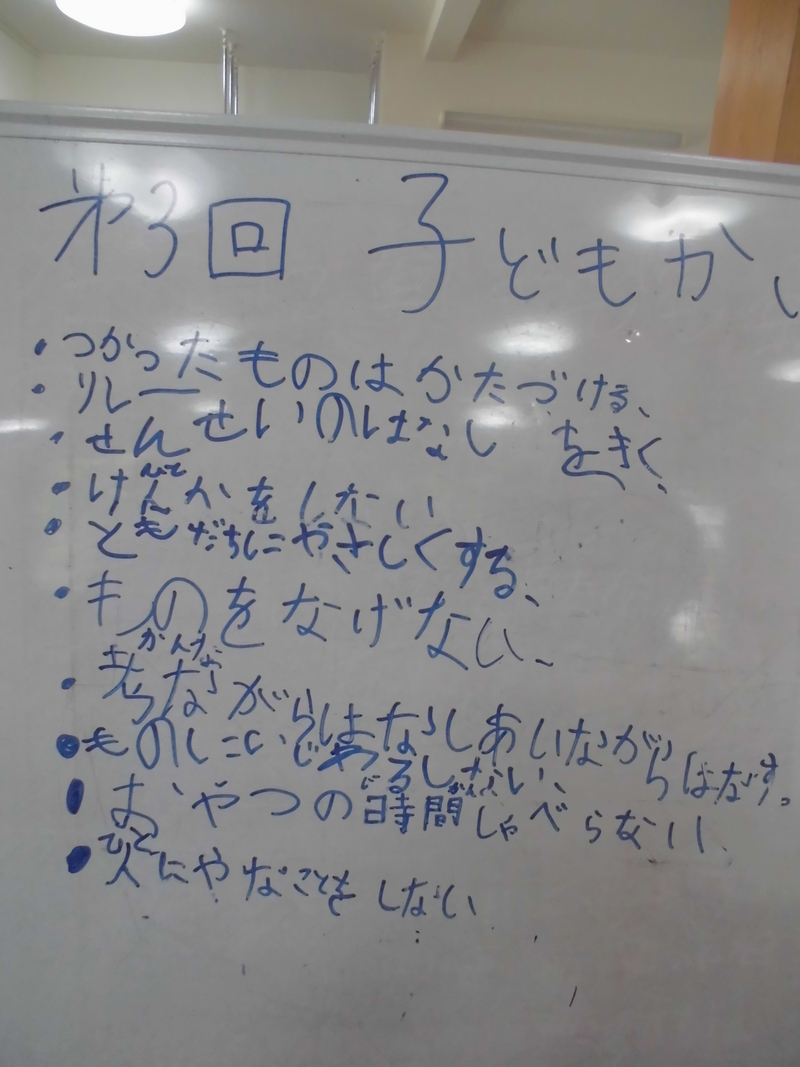 第3回 子どもかい
・つかったものはかたづける、
・リレー
・せんせいのはなしをきく、
・けんかをしない
・ともだちにやさしくする、
・ものをなげない、
・考ながらはなしあいながらはなす。
・ものに
・おやつの時間しゃべらない、
・人にやなことをしない